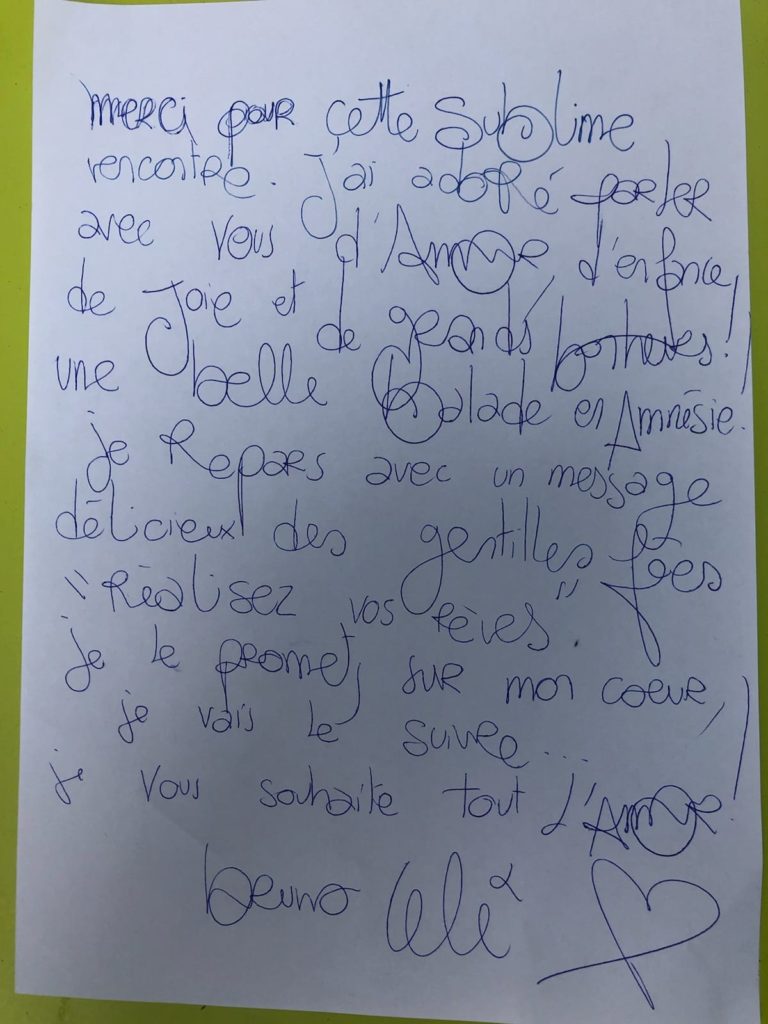 merci pour cette sublime
rencontre. J'ai adoré parler
avec vous d'Amour, d'enfance,
de Joie et de grands bonheurs!
une belle balade en Amnésie.
je Repars avec un message
délicieux des gentilles fées
"Réalisez vos rêves".
je le promet, sur mon coeur,
je vais le suivre...
je vous souhaite tout l'Amour!
bruno